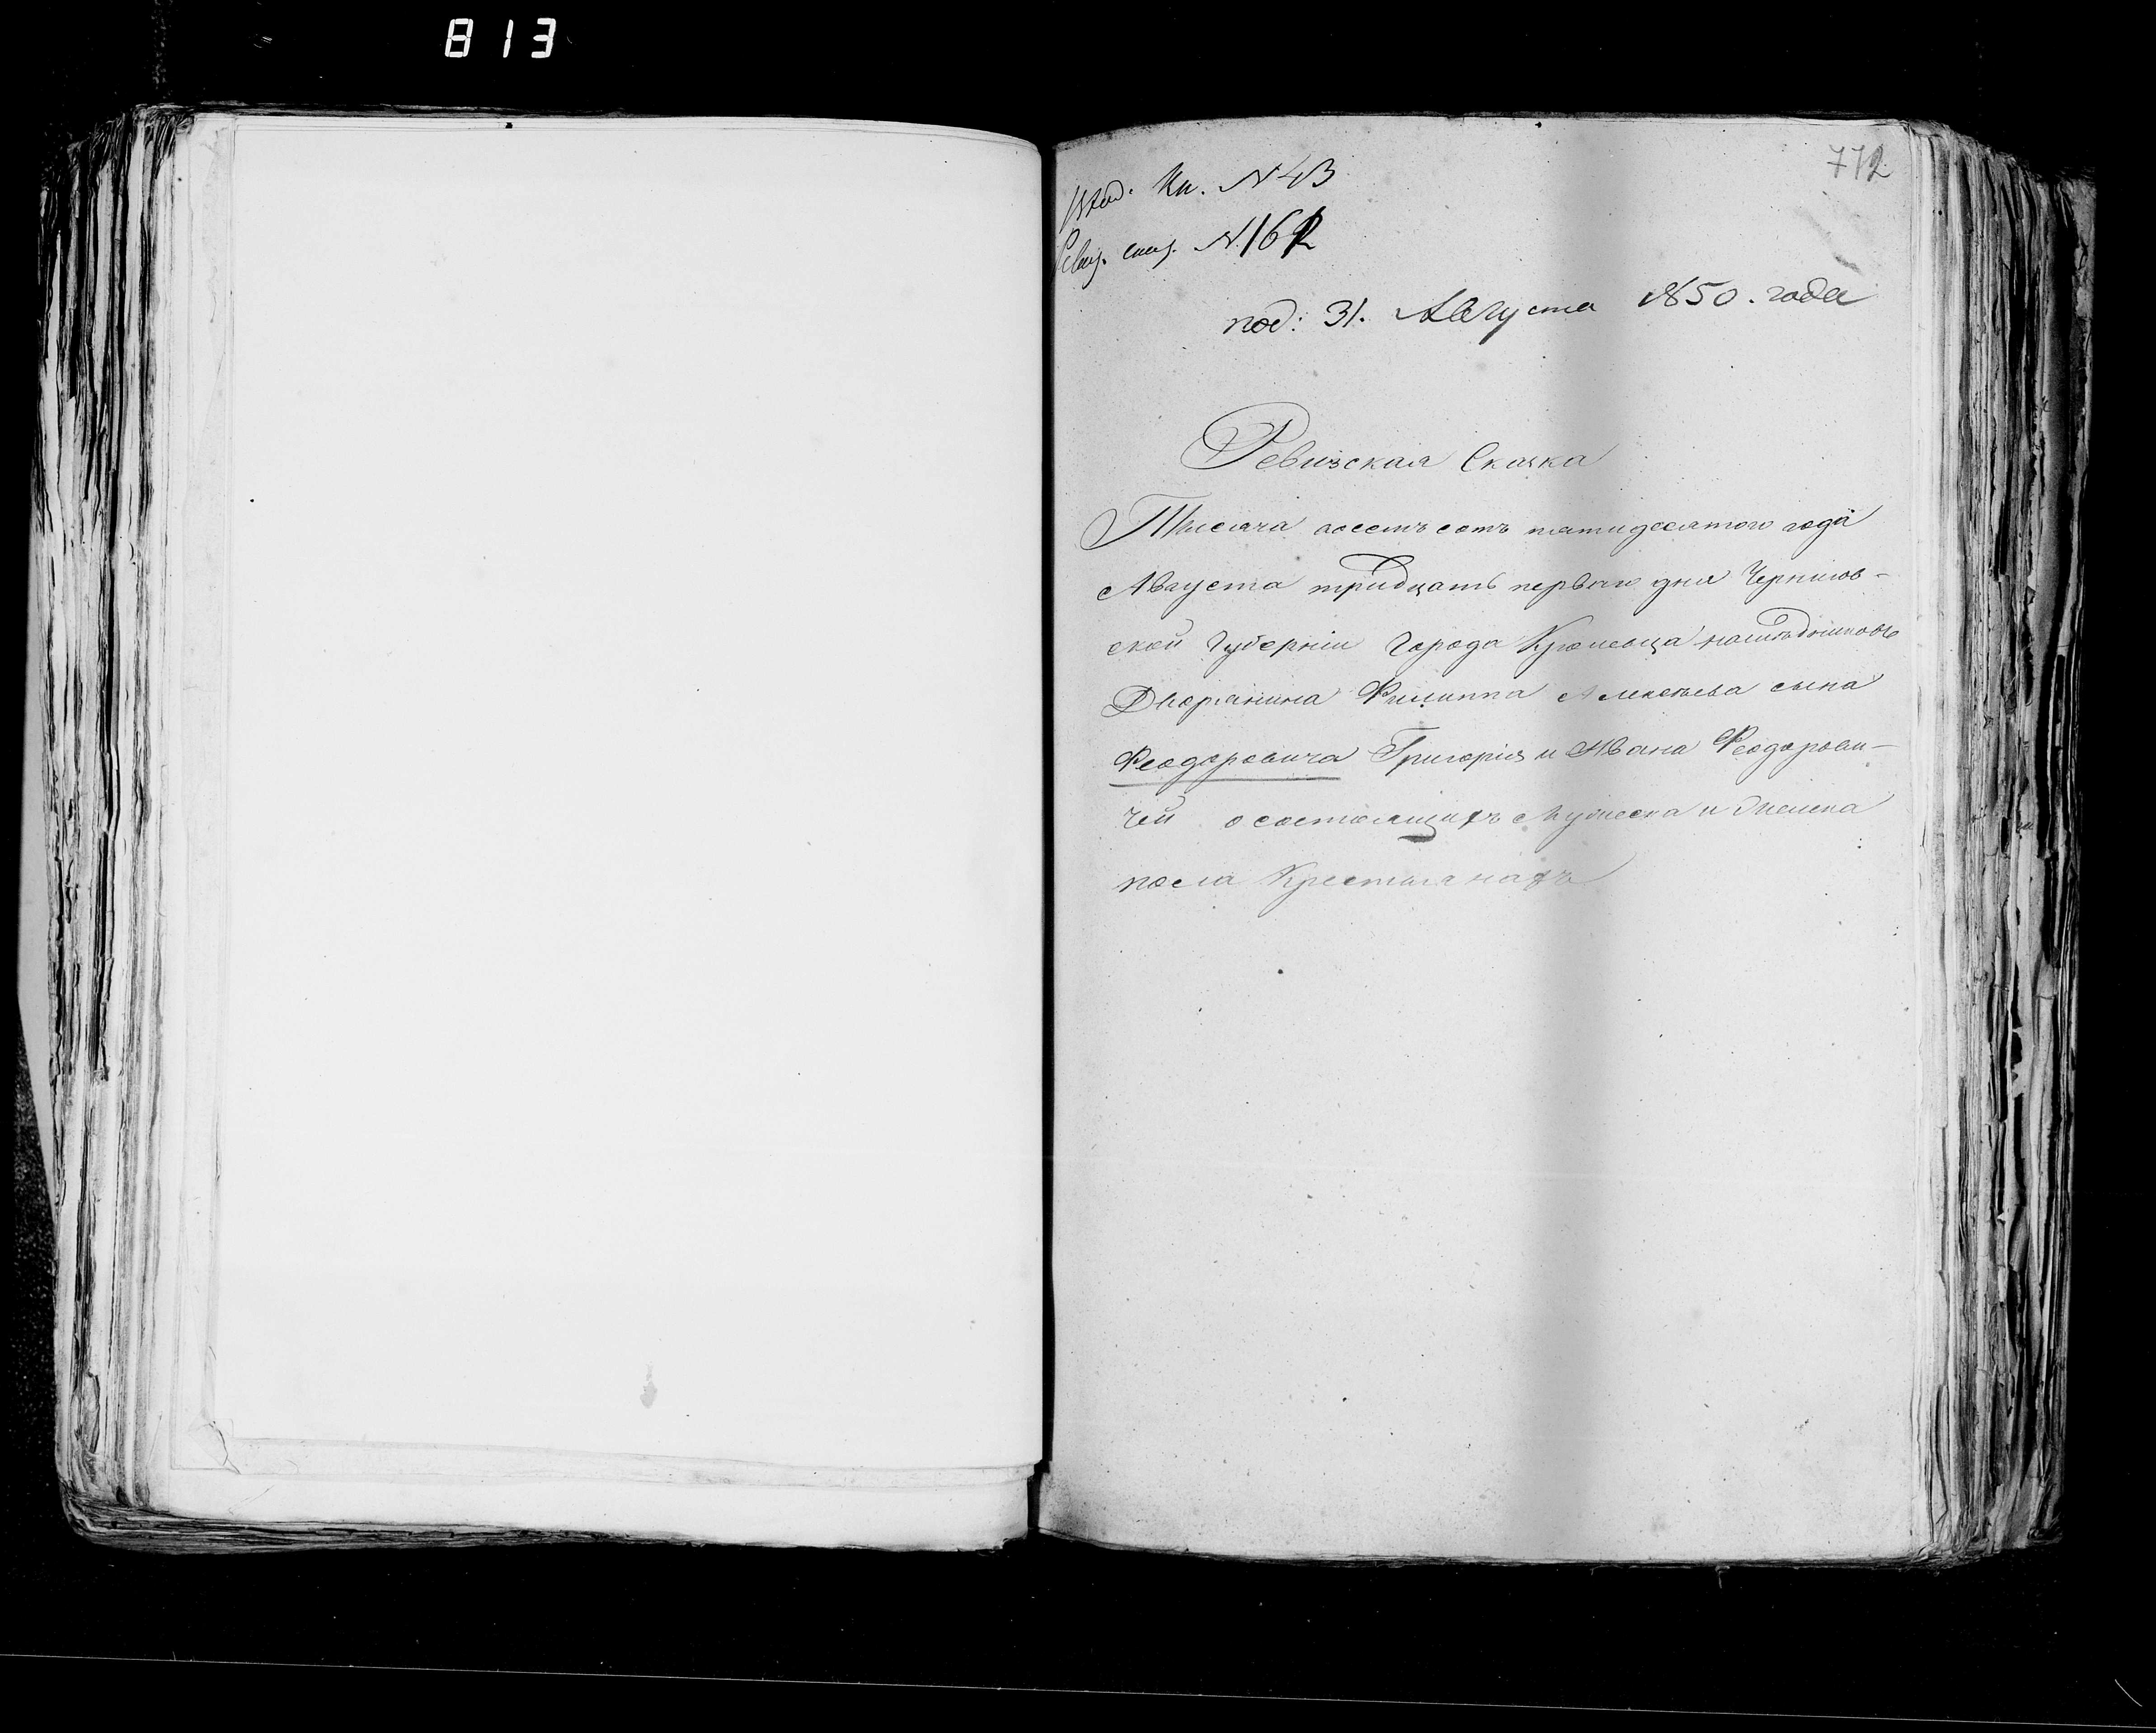 813
772
Вход. Кн. N 43
Ревиз. сказ. N 162
под: 31. Августа 1850. года
Ревизская Сказка
Тысяча восемъ сотъ пятидесятого года
Августа тридцать первого дня Чернигов-
ской Губерніи Города Кролевца наследниковъ
Дворянина Филиппа Алексеева сына
Феодоровича Григорія и Ивана Феодорови-
чей о состоящихъ Мужеска и Женска
пола Крестьянахъ